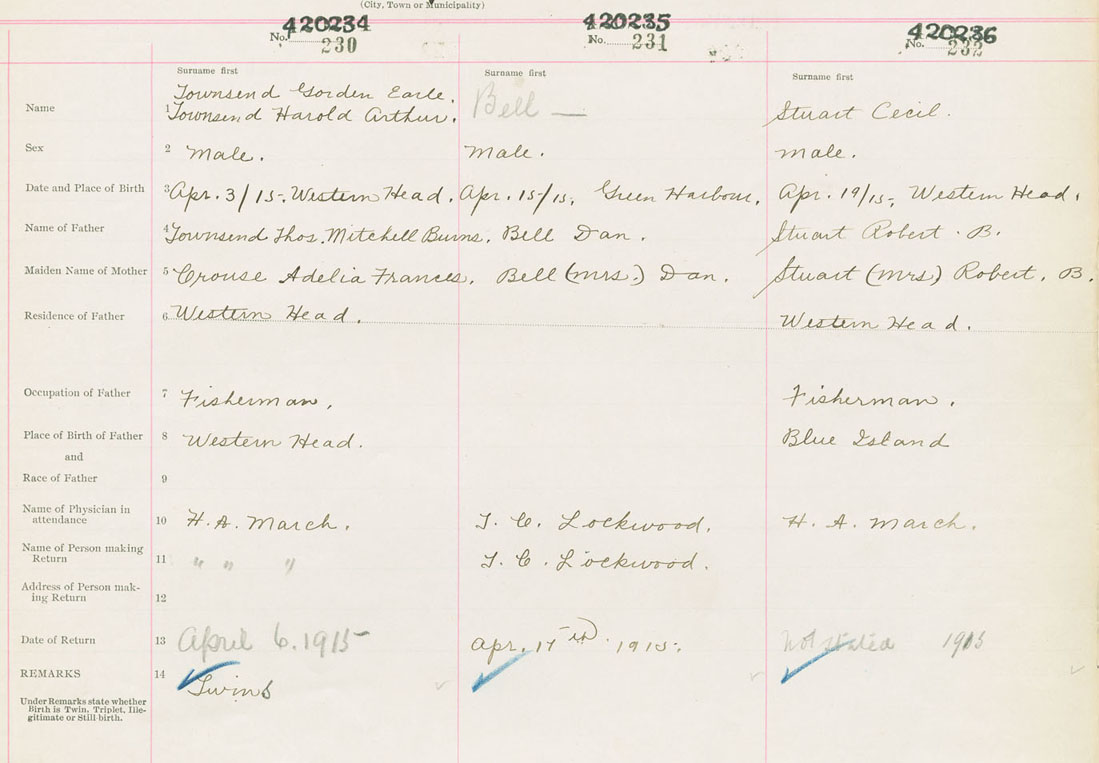 (City, Town or Municipality)
420234 420235 420236
No. 230 No. 231 No. 232
Surname first Surname first Surname first
Townsend Gorden Earle.
Name 1 Townsend Harold Arthur. Bell — Stuart Cecil.
Sex 2 Male. Male. Male.
Date and Place of Birth 3 Apr. 3/15, Western Head. Apr. 15/15, Green Harbour. Apr. 19/15, Western Head.
Name of Father 4 Townsend Thos. Mitchell Burns. Bell Dan. Stuart Robert. B.
Maiden Name of Mother 5 Crouse Adelia Frances. Bell (Mrs.) Dan. Stuart (Mrs) Robert. B.
Residence of Father 6 Western Head. Western Head.
Occupation of Father 7 Fisherman. Fisherman.
Place of Birth of Father 8 Western Head. Blue Island
and
Race of Father 9
Name of Physician in
attendance 10 H. A. March. T. C. Lockwood. H. A. March.
Name of Person making
Return 11 " " " T. C. Lockwood.
Address of Person mak-
ing Return 12
Date of Return 13 April 6. 1915 Apr. 17th. 1915. Not Stated 1915
REMARKS 14 Twins
Under Remarks state whether
Birth is Twin, Triplet, Ille-
gitimate or Still-birth.